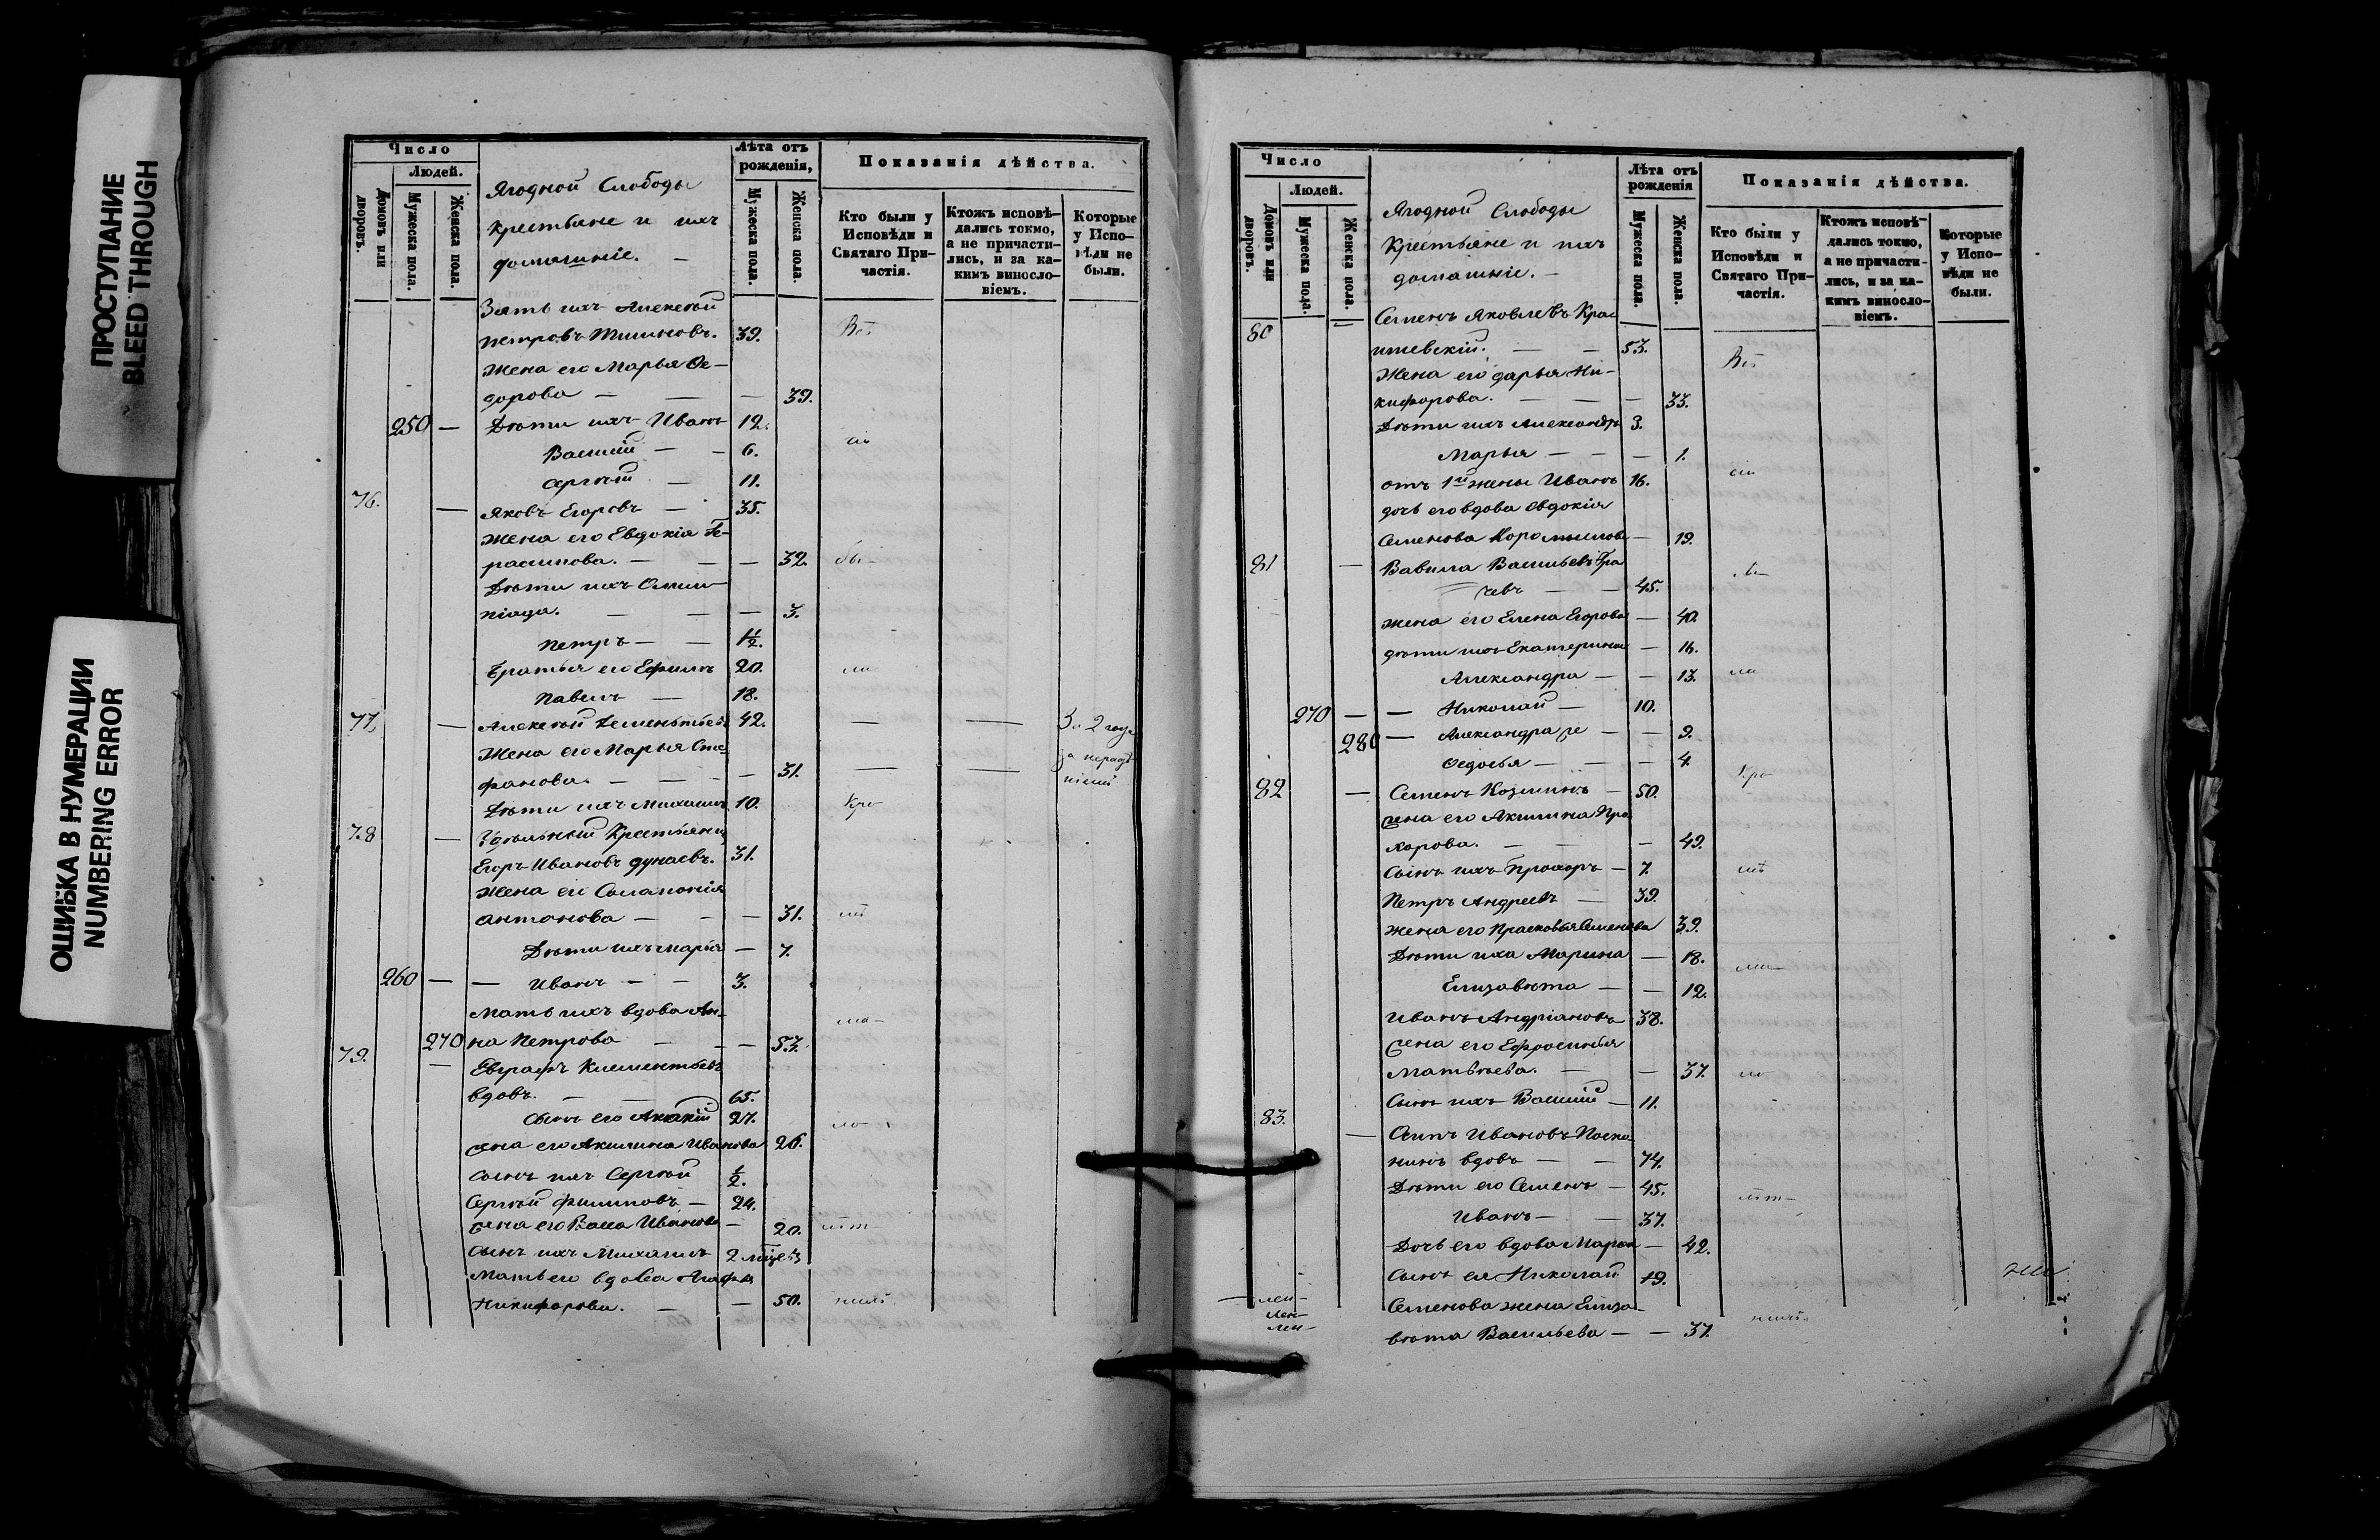 ПРОСТУПАНИЕ
BLEED THROUGH
ОШИБКА В НУМЕРАЦИИ
NUMBERING ERROR
Число
Людей.
Домовъ или дворовъ.
Мужеска пола.
Женска пола.
Ягодной Слободы
крестьяне и ихъ
домашніе. —
Лѣта отъ рожденія,
Мужеска пола.
Женска пола.
Показанія дѣйства.
Кто были у Исповѣди и Святаго Причастія.
Ктожъ исповѣдались токмо, а не причастились, и за какимъ винословіемъ.
Которые у Исповѣди не были.
Зять ихъ Алексѣй
Петровъ 39.
Жена его Марья Ѳе-
дорова — — — 39.
250 — Дѣти ихъ Иванъ 12.
Василій — — 6.
Сергѣй — 11.
76. — Яковъ Егоровъ — 35.
Жена его Евдокія Ге-
расимова. — — — 32. бы-
Дѣти ихъ Олим-
піада. — — — 3.
Петръ — — 1½.
Братья его Ефимъ 20. ли
Павелъ — 18.
77. — Алексѣй Дементьевъ 42. — — 3. 2 года
Жена его Марья Сте-
фанова. — — — 31. — — за нерадѣ-
ніемъ
Дѣти ихъ Михаилъ 10. Кро-
78 — Удѣльный Крестьянинъ
Егоръ Ивановъ Дунаевъ. 31.
Жена его Соломонія
Антонова — — — 31. мѣ
Дѣти ихъ Марья — 7.
260 — — Иванъ — — 3.
Мать ихъ вдова Ан-
270 на Петрова — — — 53.
79. — Евграфъ Климентьевъ
вдовъ. — — 65.
Сынъ его Акакій 27.
жена его Акилина Иванова 26.
Сынъ ихъ Сергѣй ½.
Сергѣй Филиповъ — 24.
жена его Васса Иванова — 20. лѣт-
Сынъ ихъ Михаилъ 2 мѣсец.
Мать его вдова Агафья
Никифорова. — — 50. нихъ.
Число
Людей.
Домовъ или дворовъ.
Мужеска пола.
Женска пола.
Ягодной Слободы
Крестьяне и ихъ
домашніе. —
Лѣта отъ рожденія
Мужеска пола.
Женска пола.
Показанія дѣйства.
Кто были у Исповѣди и Святаго Причастія.
Ктожъ исповѣдались токмо, а не причастились, и за какимъ винословіемъ.
Которые у Исповѣди не были.
80 Семенъ Яковлевъ
53.
Жена его Дарья Ни-
кифорова. — — — 33.
Дѣти ихъ Александръ 3.
Марья — — — 1.
отъ 1й жены Иванъ 16.
дочь его вдова Евдокія
Семенова Коромыслова — 19.
81 — Вавила Васильевъ Гра
чевъ — — 45.
жена его Елена Егорова — 40.
дѣти ихъ Екатерина — 16.
Александра — — 13. ли
270 — — Николай — 10.
280 — Александра же — — 9.
Ѳедосья — — — 4.
82 — Семенъ Козминъ — 50. Кро-
жена его Акилина Про
хорова. — — — 49.
Сынъ ихъ Прохоръ — 7. мѣ
Петръ Андреевъ — 39.
жена его Прасковья Семенова 39.
Дѣти ихъ Марина — 18.
Елизавета — — 12.
Иванъ Андріановъ 38.
жена его Ефросинья
Матвѣева. — — 37.
Сынъ ихъ Василій — 11.
83. — Осипъ Ивановъ
вдовъ — — 74.
Дѣти его Семенъ — 45. лѣт-
Иванъ — — 37.
Дочь его вдова Марья — 42.
Сынъ ея Николай 19.
Семенова жена Елиза-
вета Васильева — — 37. нихъ.